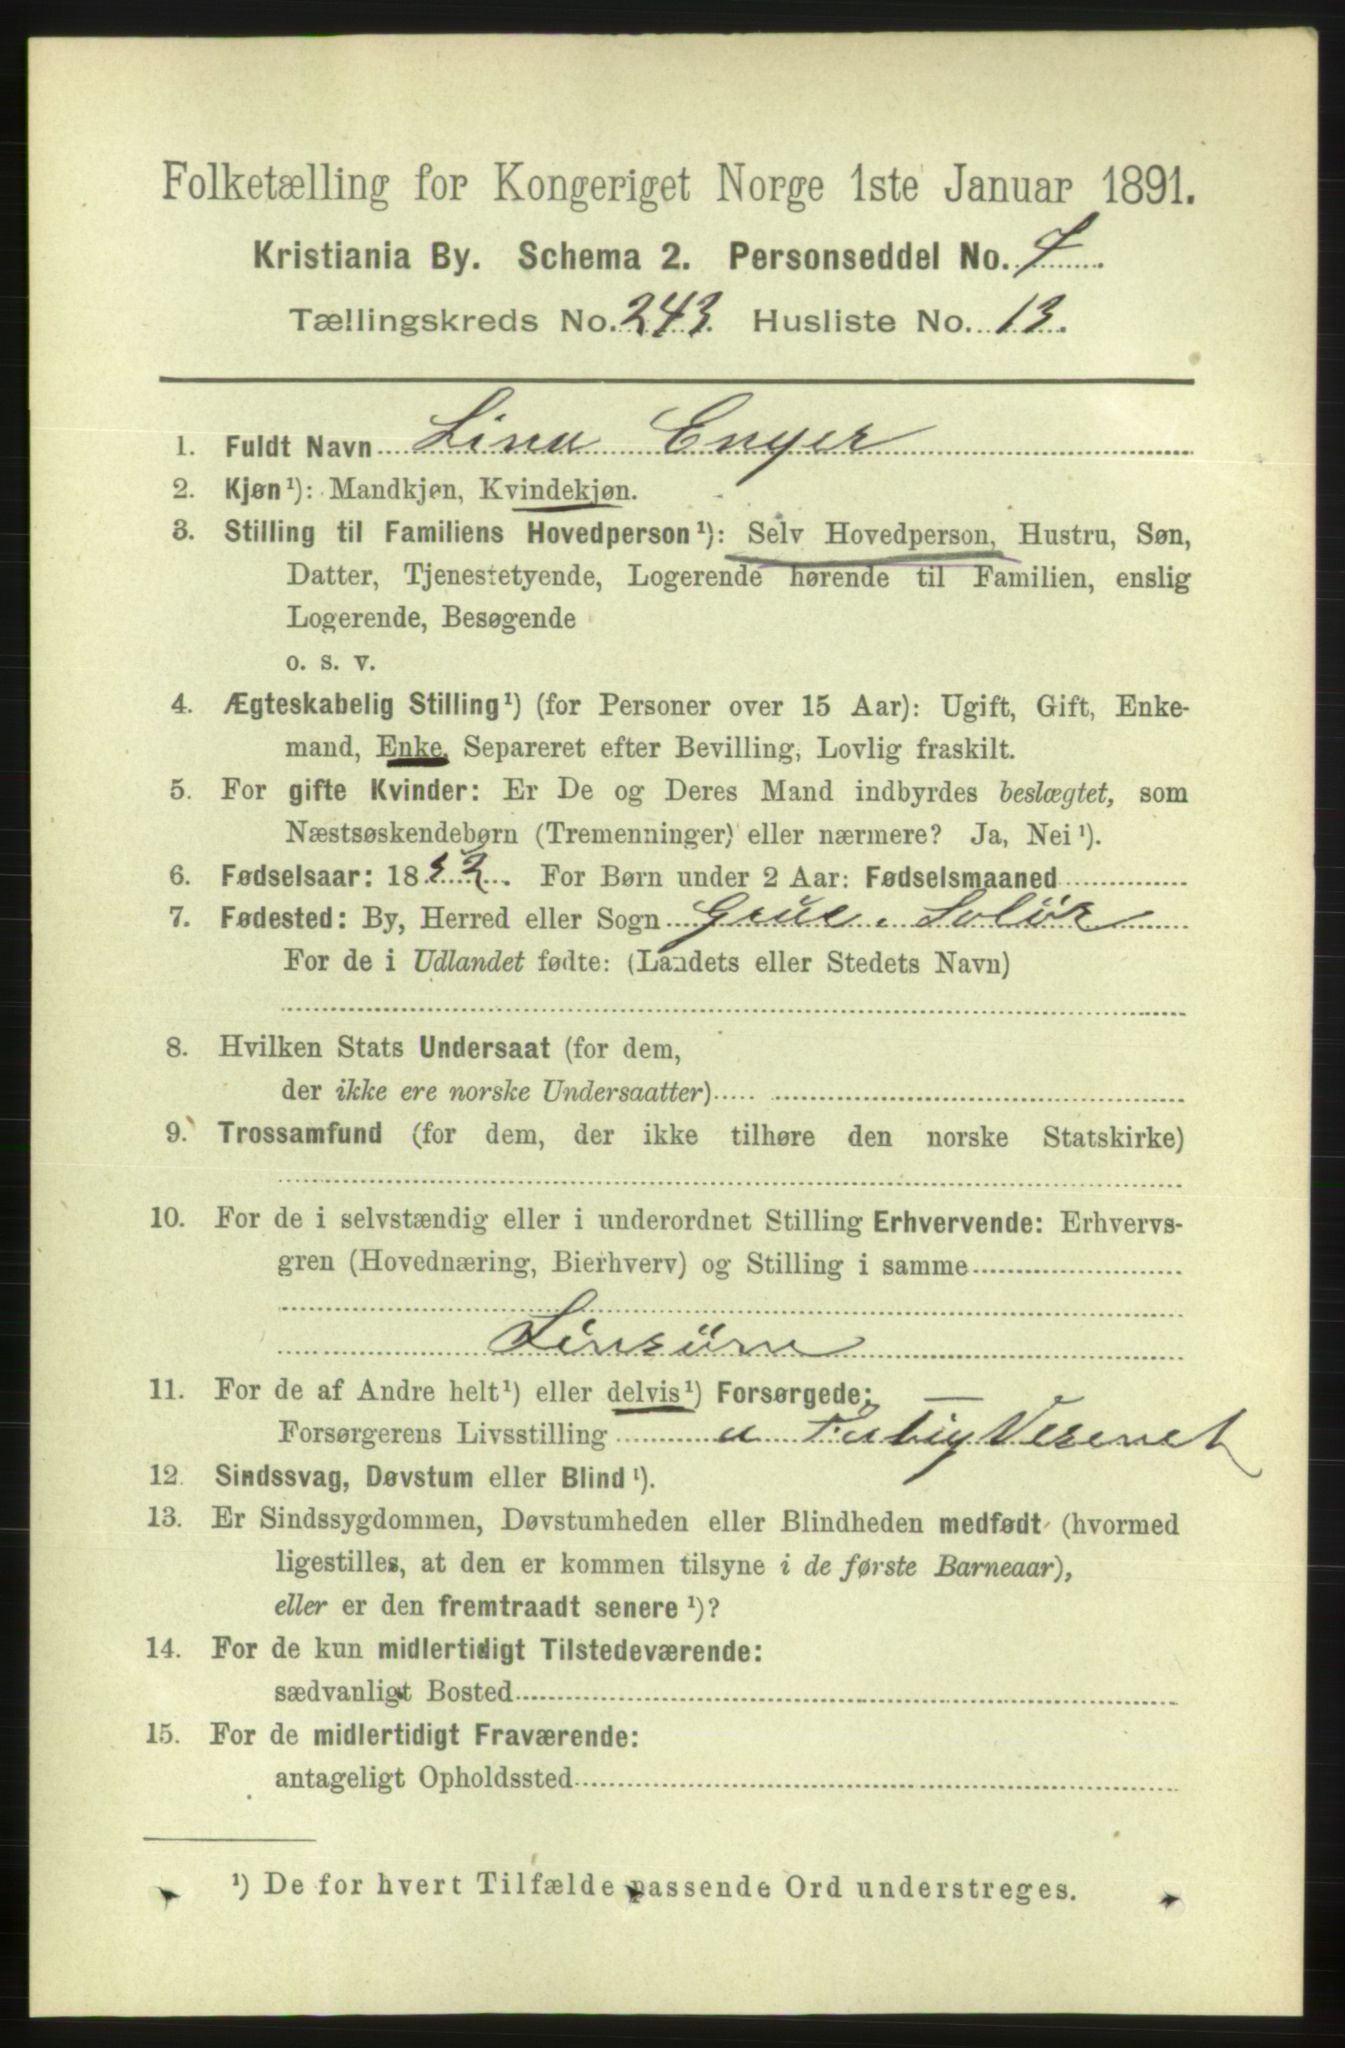 Folketælling for Kongeriget Norge 1ste Januar 1891.
Kristiania By. Schema 2. Personseddel No. 7
Tællingskreds No. 243. Husliste No. 13.
1. Fuldt Navn Lina Enger
2. Kjøn¹): Mandkjøn, Kvindekjøn.
3. Stilling til Familiens Hovedperson¹): Selv Hovedperson, Hustru, Søn,
Datter, Tjenestetyende, Logerende hørende til Familien, enslig
Logerende, Besøgende
o. s. v.
4. Ægteskabelig Stilling¹) (for Personer over 15 Aar): Ugift, Gift, Enke-
mand, Enke, Separeret efter Bevilling, Lovlig fraskilt.
5. For gifte Kvinder: Er De og Deres Mand indbyrdes beslægtet, som
Næstsøskendebørn (Tremenninger) eller nærmere? Ja, Nei¹).
6. Fødselsaar: 1852. For Børn under 2 Aar: Fødselsmaaned
7. Fødested: By, Herred eller Sogn Grue. Solör
For de i Udlandet fødte: (Landets eller Stedets Navn)
8. Hvilken Stats Undersaat (for dem,
der ikke ere norske Undersaatter)
9. Trossamfund (for dem, der ikke tilhøre den norske Statskirke)
10. For de i selvstændig eller i underordnet Stilling Erhvervende: Erhvervs-
gren (Hovednæring, Bierhverv) og Stilling i samme
11. For de af Andre helt¹) eller delvis¹) Forsørgede:
Forsørgerens Livsstilling
12. Sindssvag, Døvstum eller Blind¹).
13. Er Sindssygdommen, Døvstumheden eller Blindheden medfødt (hvormed
ligestilles, at den er kommen tilsyne i de første Barneaar),
eller er den fremtraadt senere¹)?
14. For de kun midlertidigt Tilstedeværende:
sædvanligt Bosted
15. For de midlertidigt Fraværende:
antageligt Opholdssted
¹) De for hvert Tilfælde passende Ord understreges.